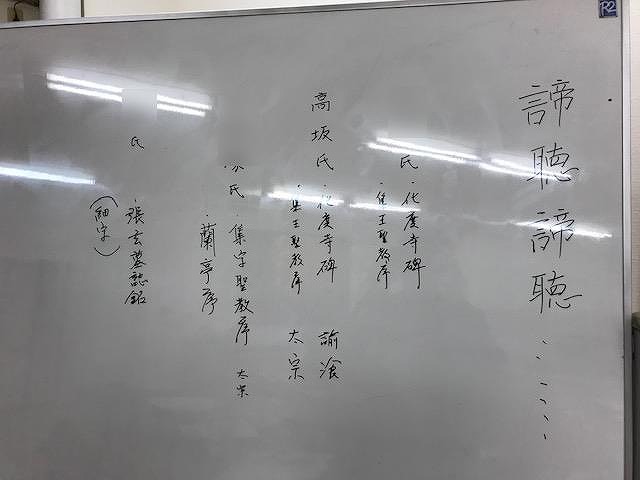 R2
諦聴諦聴・・・・・
氏 ・化度寺碑
・集王聖教序
高坂氏 ・化度寺碑 諭澯
・集王聖教序 太宗
氏 ・集字聖教序 太宗
・蘭亭序
氏 ・張玄墓誌銘
(細字)